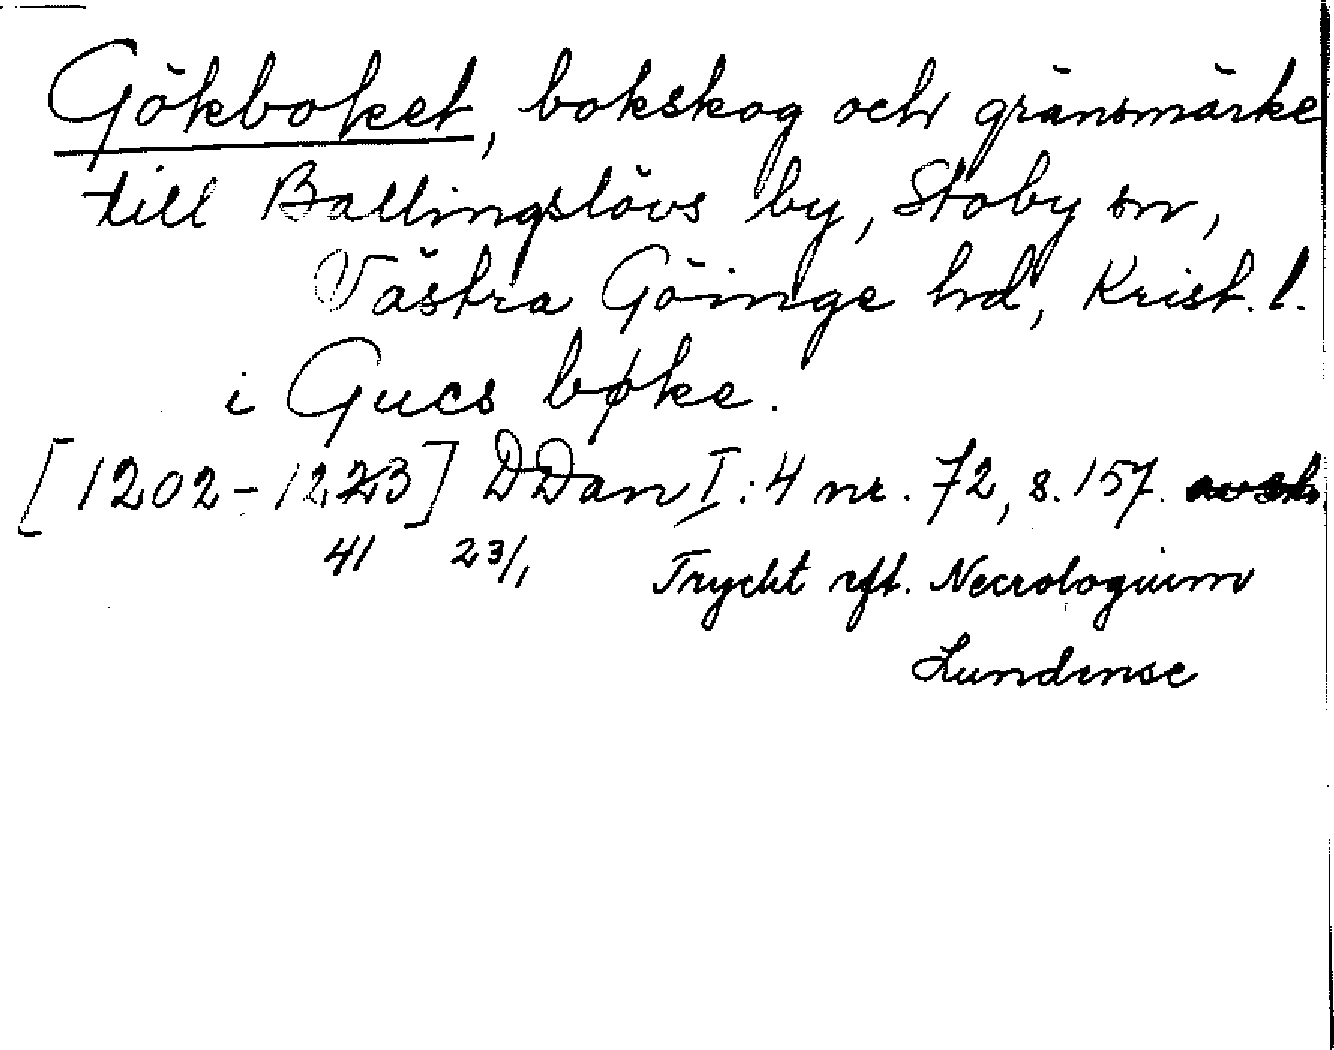 Gökboket, bokskog och gränsmärke
till Ballingslövs by, Stoby sn,
Västra Göinge hd, Krist. l.
i Gucs bøke.
[1202-1223] DDan I:4 nr. 72, s. 157.
41 23/1 Tryckt eft. Necrologium
Lundense